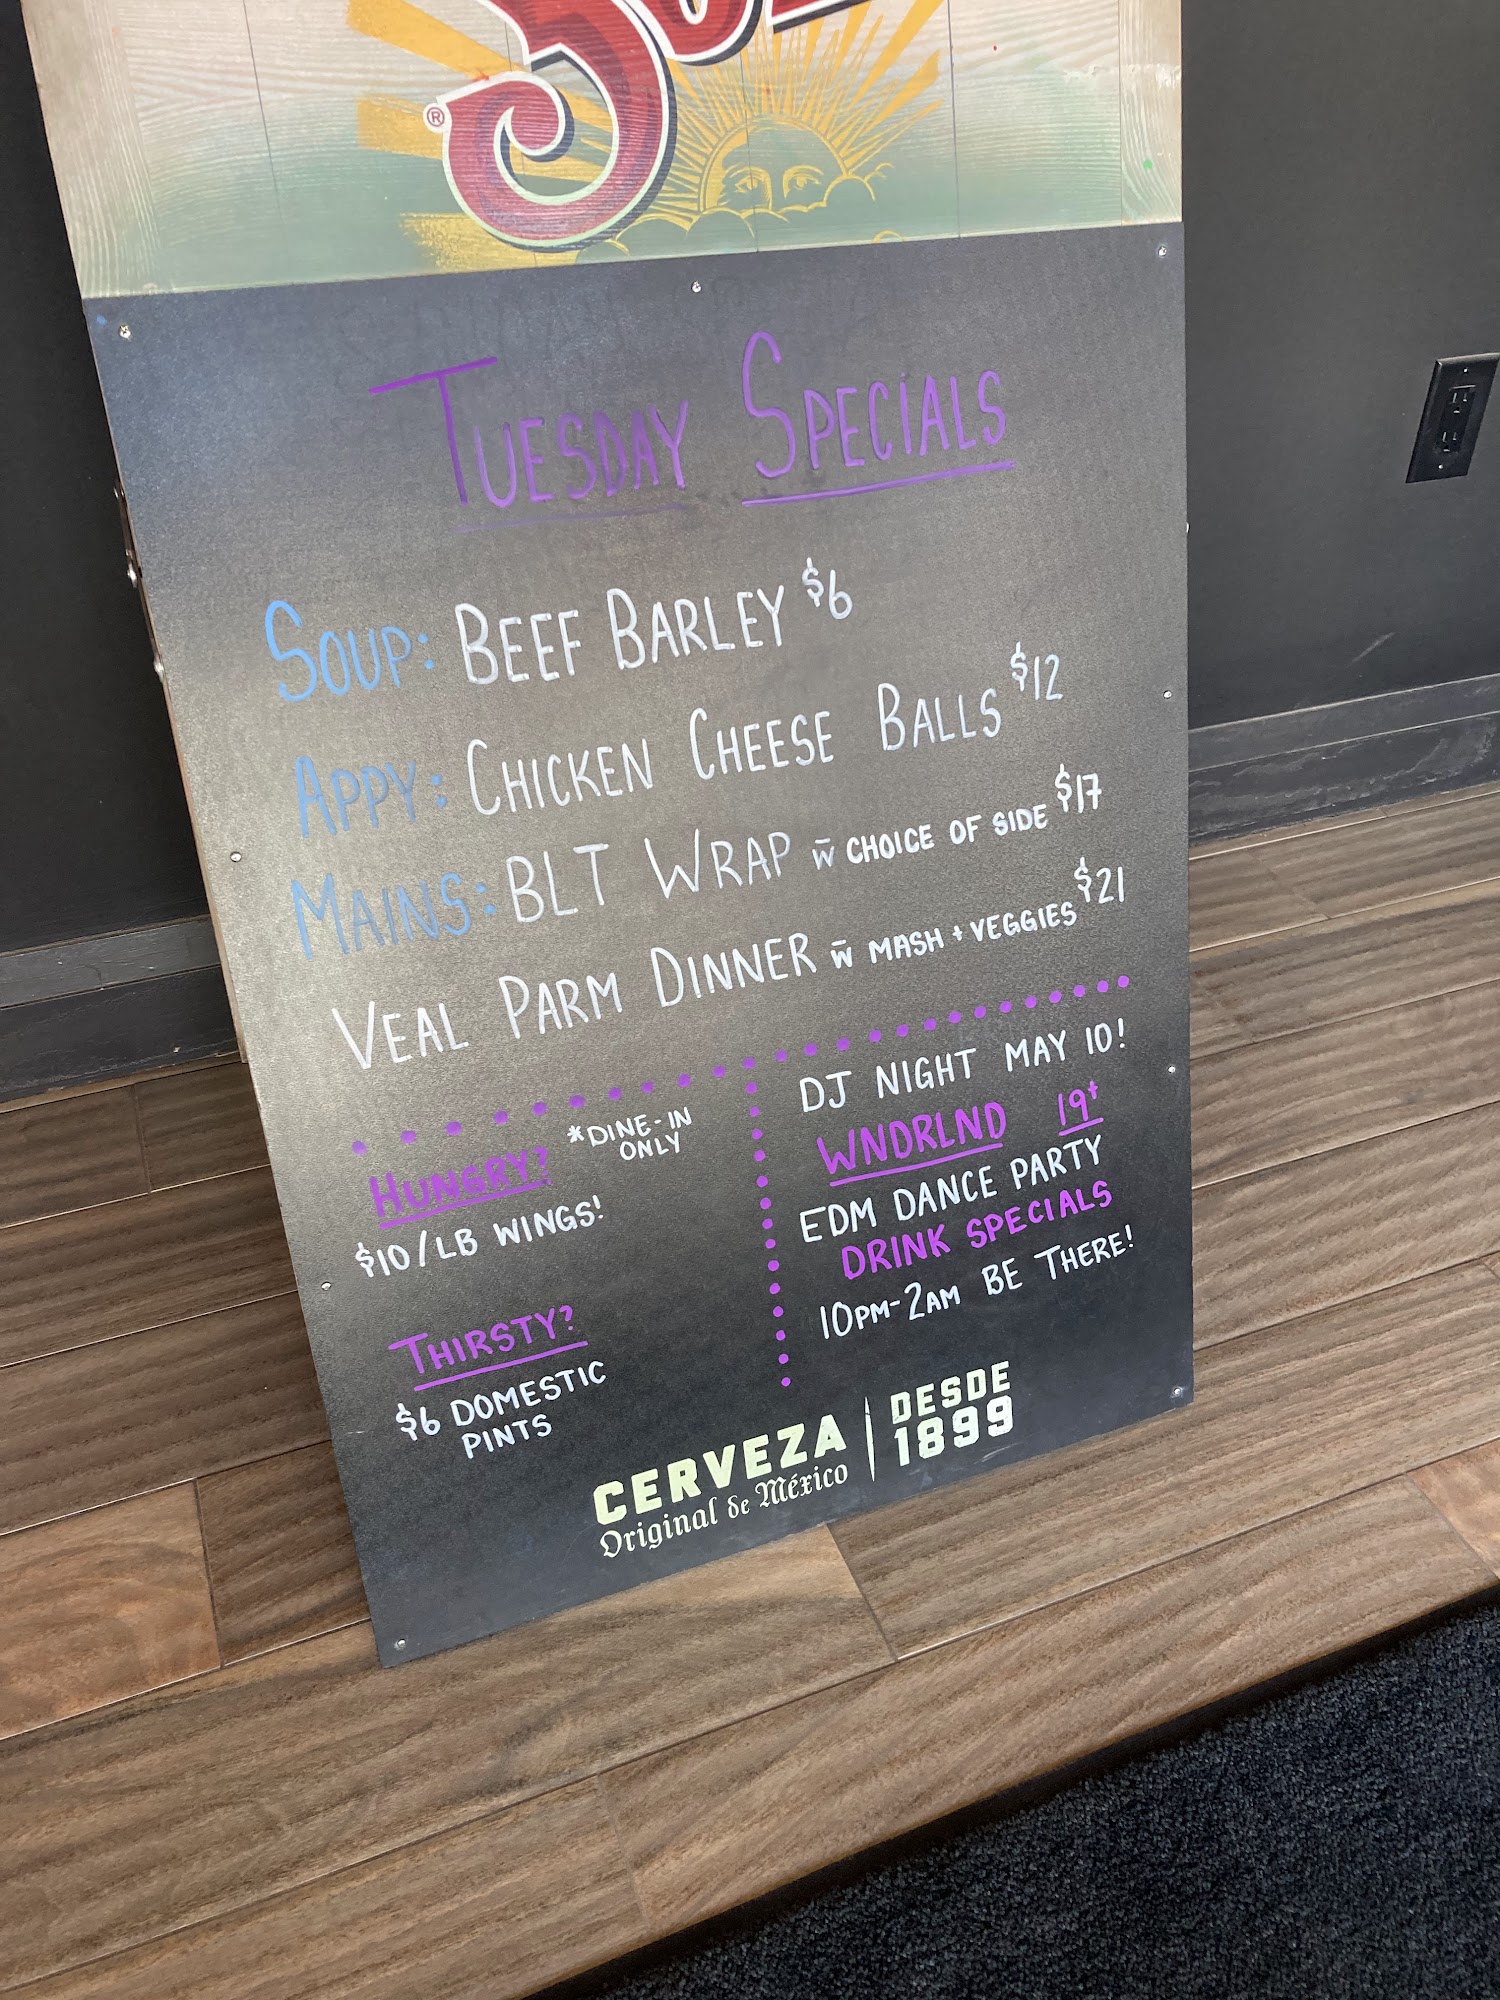 ®
TUESDAY SPECIALS
SOUP: BEEF BARLEY $6
APPY: CHICKEN CHEESE BALLS $12
MAINS: BLT WRAP w̄ CHOICE OF SIDE $17
VEAL PARM DINNER w̄ MASH + VEGGIES $21
HUNGRY? *DINE-IN ONLY
$10/LB WINGS!
THIRSTY?
$6 DOMESTIC
PINTS
DJ NIGHT MAY 10!
WNDRLND 19+
EDM DANCE PARTY
DRINK SPECIALS
10PM-2AM BE THERE!
CERVEZA
Original de México
DESDE
1899